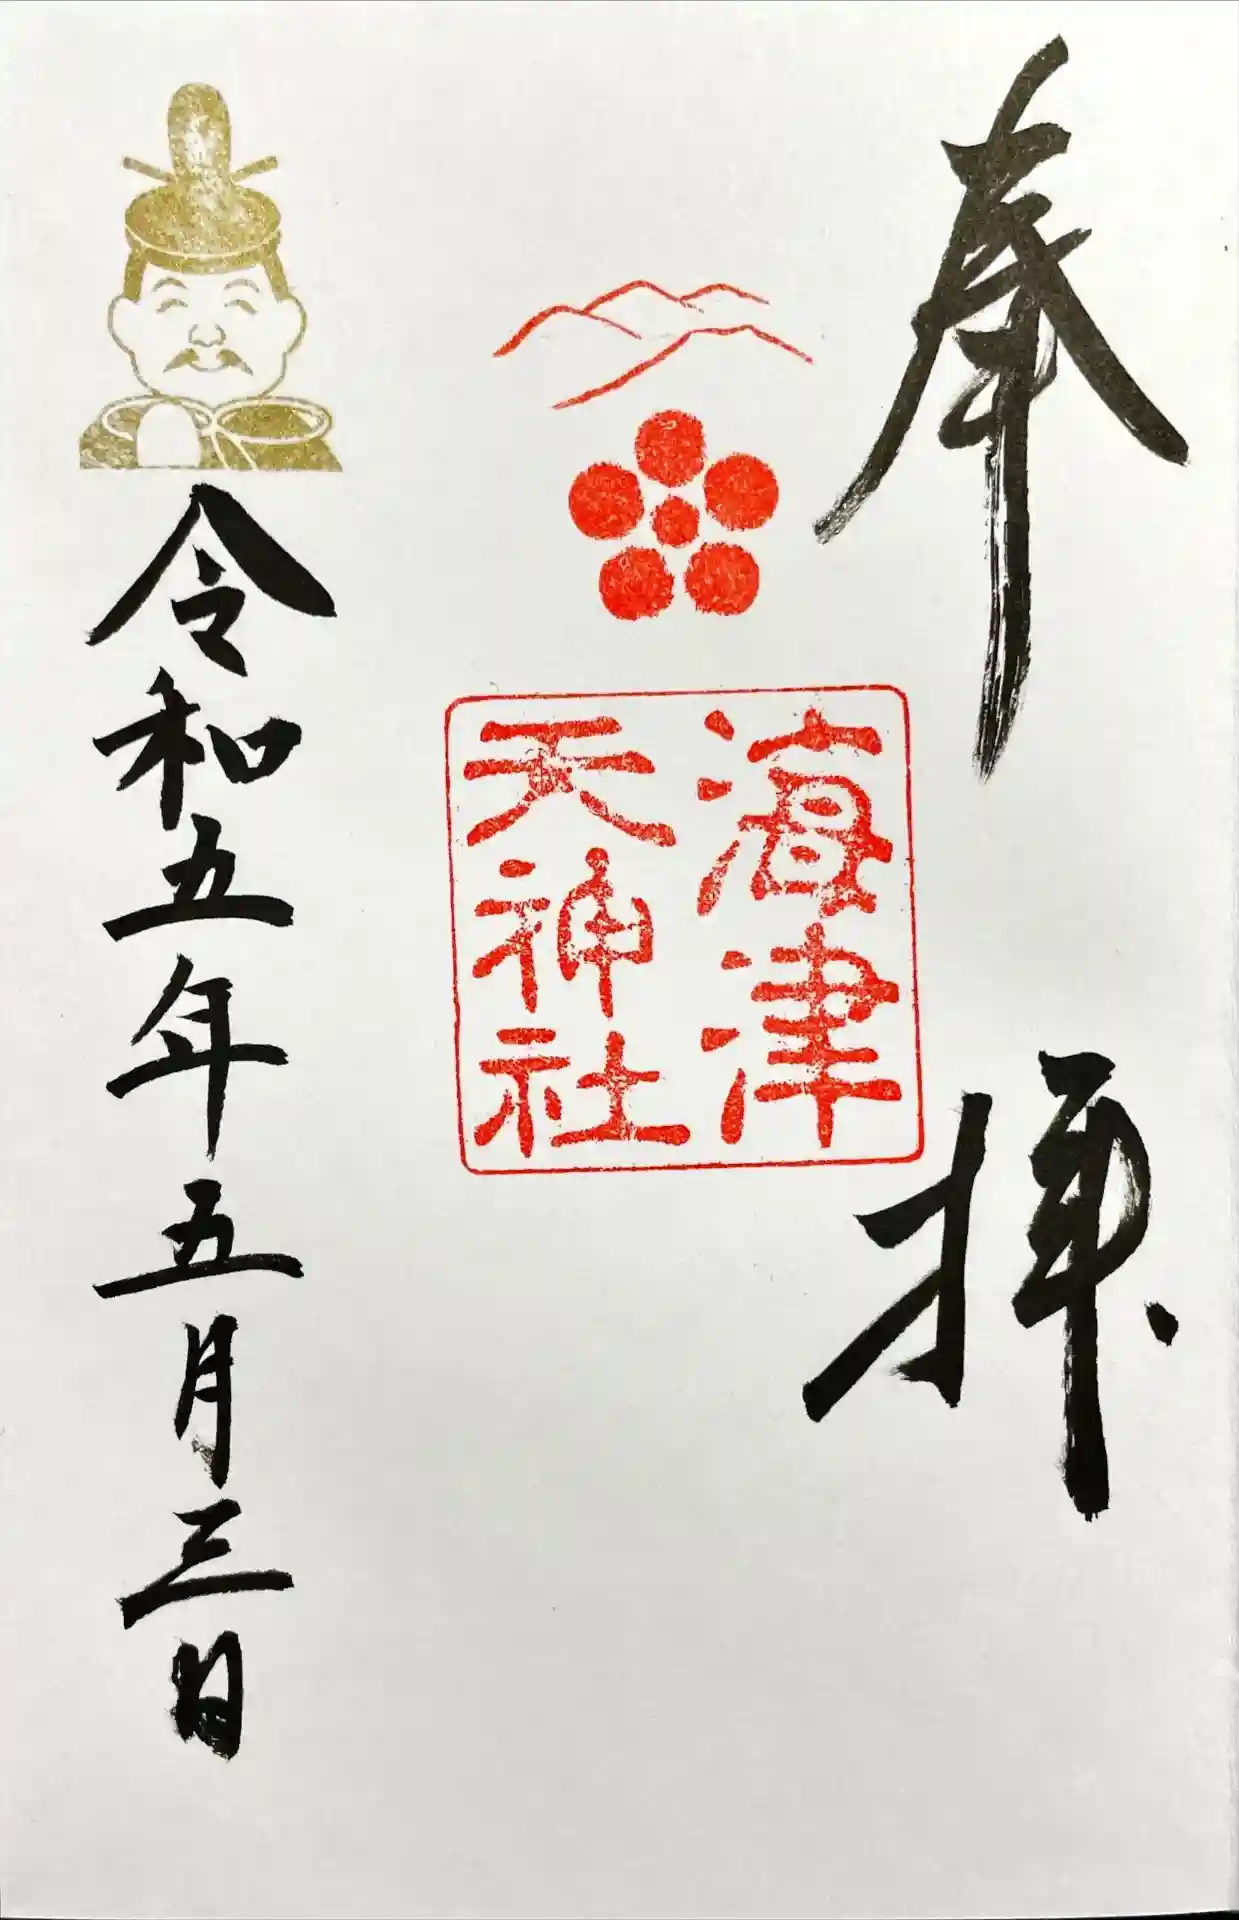 奉拝
海津
天神社
令和五年五月三日